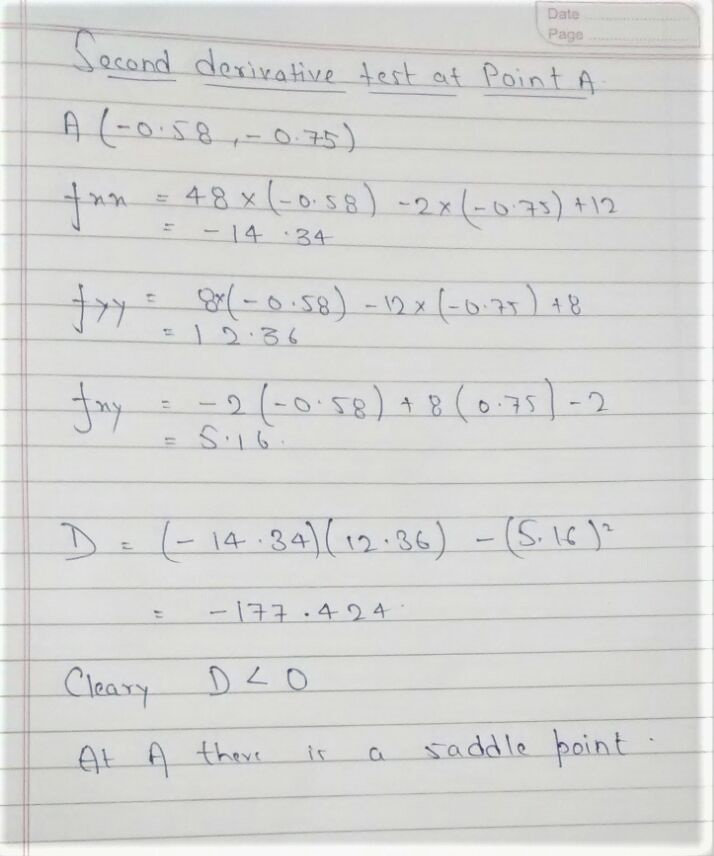 Date
Page
Second derivative test at Point A.
A (-0.58, -0.75)
fxx = 48 x (-0.58) -2x(-0.75) +12
= -14.34
fyy = 8x(-0.58) -12x(-0.75) +8
= 12.36
fxy = -2(-0.58) + 8(0.75) -2
= 5.16.
D = (-14.34)(12.36) - (5.16)²
= -177.424.
Cleary D < 0
At A there is a saddle point.